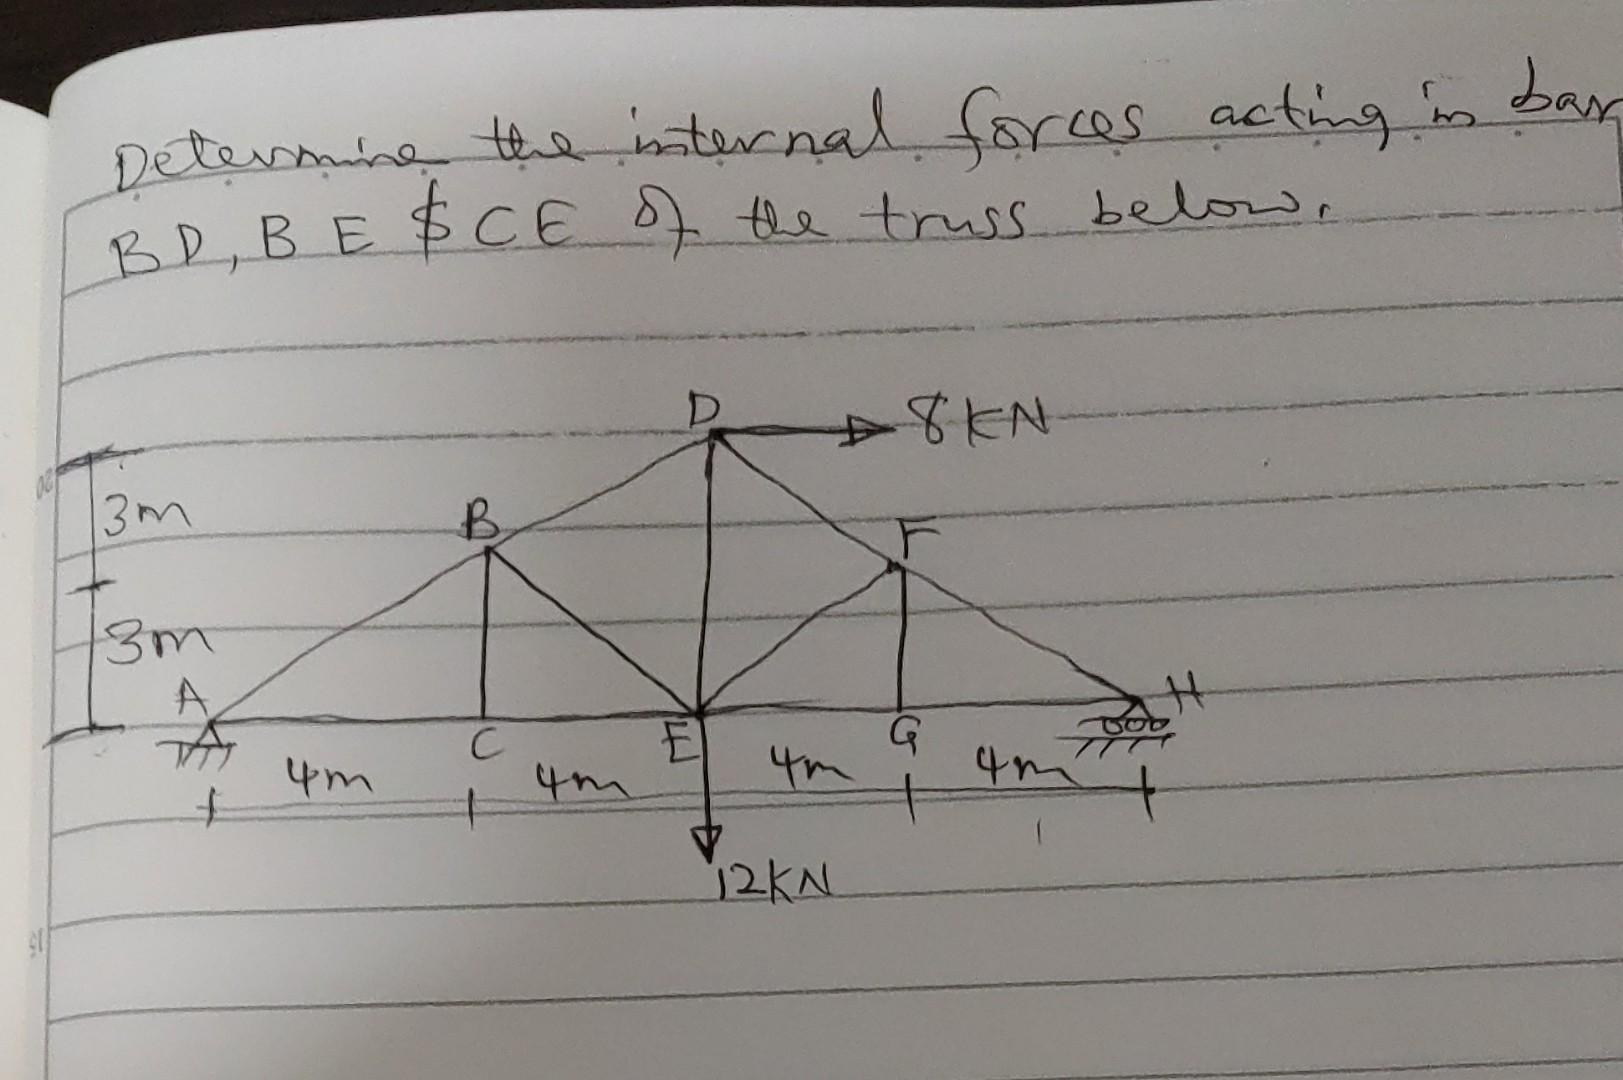 Determine the internal forces acting in bar
BD, BE $ CE of the truss below.
D
8KN
3m
B
F
3m
A
H
C
E
G
4m
4m
4m
4m
12KN
20
15